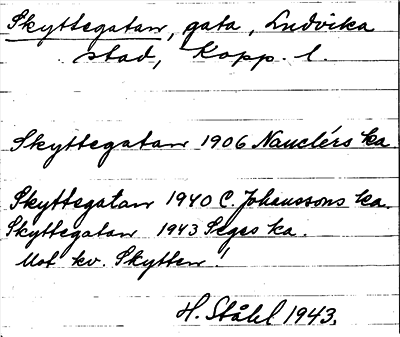 Skyttegatan, gata, Ludvika
stad, Kopp. l.
Skyttegatan 1906 Nauclérs ka.
Skyttegatan 1940 C. Johanssons ka.
Skyttegatan 1943 Seges ka.
Mot kv. Skytten!
H. Ståhl 1943.